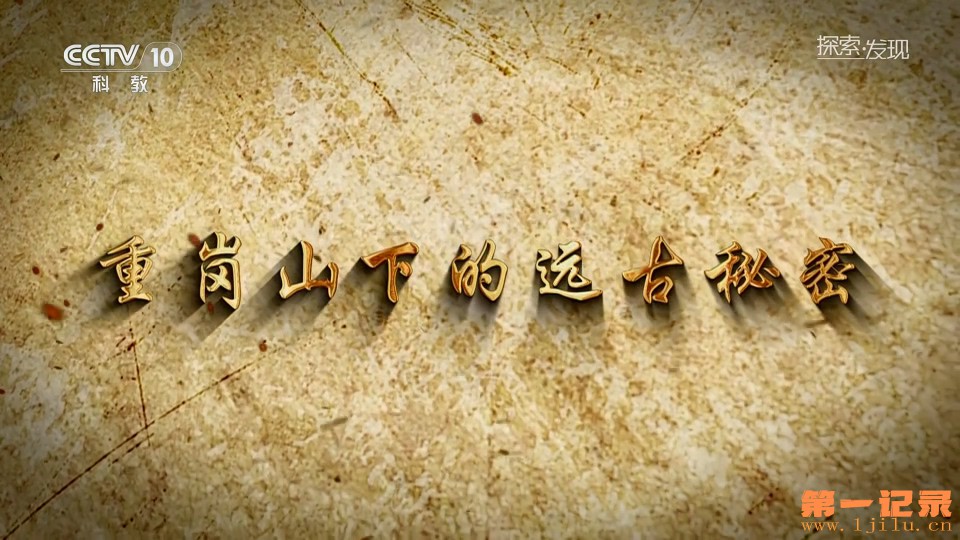 CCTV 10
科教
探索·发现
重岗山下的远古秘密
第一记录
www.1jilu.cn